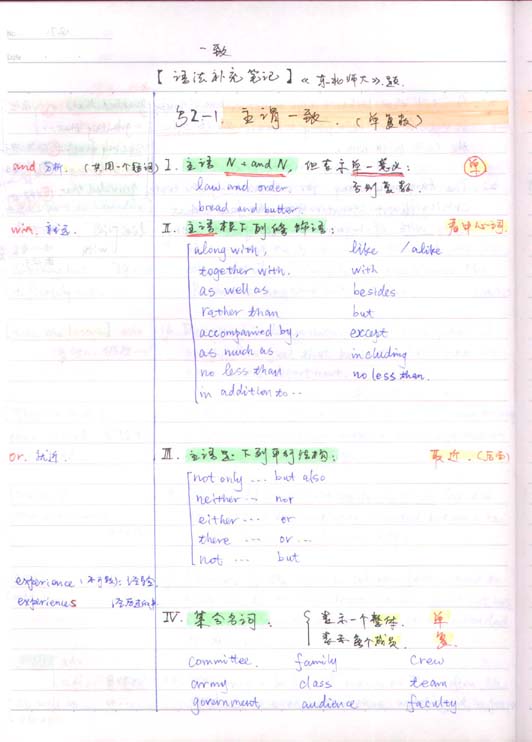 No.
Date
一致
【语法补充笔记】《东北师大》题.
§2-1. 主谓一致.（单复数）
and 分析.（共用一个冠词） I. 主语 N + and N, 但表示单一意义: 单
law and order. 否则复数
bread and butter
with. II. 主语后下列修饰语: 看中心词.
along with, like / alike
together with. with
as well as besides
rather than but
accompanied by, except
as much as including
no less than no less than.
in addition to ..
or. 就近. III. 主语是下列平行结构: 最近.（后面）
not only ... but also
neither ... nor
either ... or
there ... or ...
not ... but
experience（不可数）: 经验
experiences
IV. 集合名词: 表示一个整体. 单
表示每个成员. 复
committee. family crew
army class team
government audience faculty